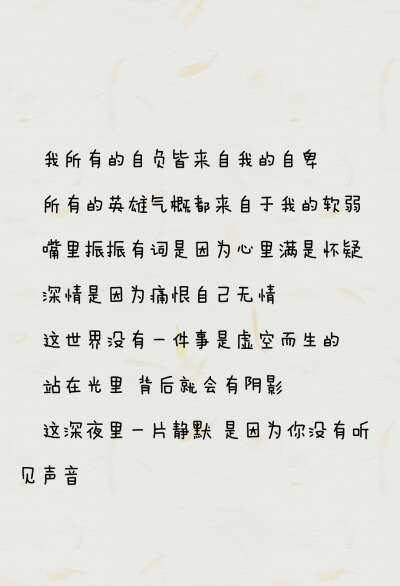 我所有的自负皆来自我的自卑
所有的英雄气概都来自于我的软弱
嘴里振振有词是因为心里满是怀疑
深情是因为痛恨自己无情
这世界没有一件事是虚空而生的
站在光里 背后就会有阴影
这深夜里一片静默 是因为你没有听
见声音